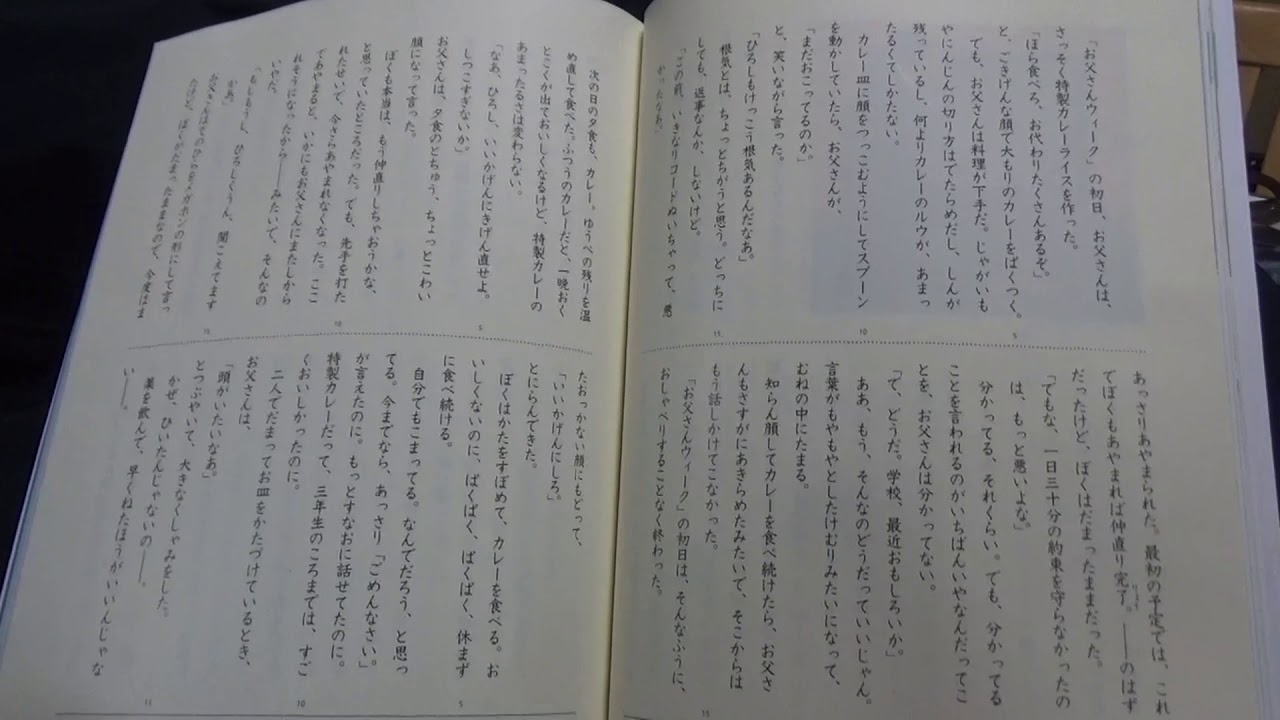 「お父さんウィーク」の初日、お父さんは、
さっそく特製カレーライスを作った。
「ほら食べろ、お代わりたくさんあるぞ。」
と、ごきげんな顔で大もりのカレーをぱくつく。
でも、お父さんは料理が下手だ。じゃがいも
やにんじんの切り方はでたらめだし、しんが
残っているし、何よりカレーのルウが、あまっ
たるくてしかたない。
カレー皿に顔をつっこむようにしてスプーン
を動かしていたら、お父さんが、
「まだおこってるのか。」
と、笑いながら言った。
「ひろしもけっこう根気あるんだなあ。」
根気とは、ちょっとちがうと思う。どっちに
しても、返事なんか、しないけど。
「この前、いきなりコードぬいちゃって、悪
かったなあ。」
5
10
15
あっさりあやまられた。最初の予定では、これ
でぼくもあやまれば仲直り完了。――のはず
りょう
だったけど、ぼくはだまったままだった。
「でもな、一日三十分の約束を守らなかったの
は、もっと悪いよな。」
分かってる、それくらい。でも、分かってる
ことを言われるのがいちばんいやなんだってこ
とを、お父さんは分かってない。
「で、どうだ。学校、最近おもしろいか。」
ああ、もう、そんなのどうだっていいじゃん。
言葉がもやもやとしたけむりみたいになって、
むねの中にたまる。
知らん顔してカレーを食べ続けたら、お父さ
んもさすがにあきらめたみたいで、そこからは
もう話しかけてこなかった。
「お父さんウィーク」の初日は、そんなふうに、
おしゃべりすることなく終わった。
15
次の日の夕食も、カレー。ゆうべの残りを温
め直して食べた。ふつうのカレーだと、一晩おく
とこくが出ておいしくなるけど、特製カレーの
あまったるさは変わらない。
「なあ、ひろし、いいかげんにきげん直せよ。
しつこすぎないか。」
お父さんは、夕食のとちゅう、ちょっとこわい
顔になって言った。
ぼくも本当は、もう仲直りしちゃおうかな、
と思っていたところだった。でも、先手を打た
れたせいで、今さらあやまれなくなった。ここ
であやまると、いかにもお父さんにまたしから
れそうになったから――みたいで、そんなの
いやだ。
「もしもうし、ひろしくうん、聞こえてます
かあ。」
お父さんはてのひらをメガホンの形にして言っ
たけど、ぼくがだまったままなので、今度はま
5
10
15
たおっかない顔にもどって、
「いいかげんにしろ。」
とにらんできた。
ぼくはかたをすぼめて、カレーを食べる。お
いしくないのに、ぱくぱく、ぱくぱく、休まず
に食べ続ける。
自分でもこまってる。なんでだろう、と思っ
てる。今までなら、あっさり「ごめんなさい。」
が言えたのに。もっとすなおに話せてたのに。
特製カレーだって、三年生のころまでは、すご
くおいしかったのに。
二人でだまってお皿をかたづけているとき、
お父さんは、
「頭がいたいなあ。」
とつぶやいて、大きなくしゃみをした。
かぜ、ひいたんじゃないの――。
薬を飲んで、早くねたほうがいいんじゃな
い――。
5
10
15